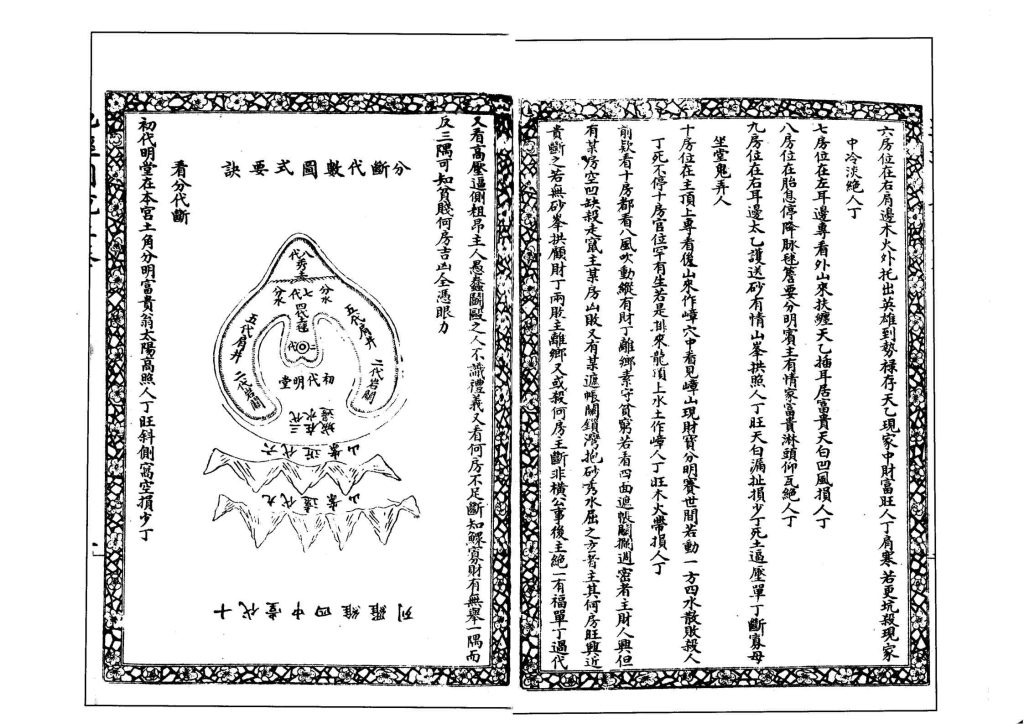 六房位在右肩邊木火外托出英雄到勢祿存天乙現家中財富旺人丁肩寒若更坑殺現家
中冷淡絕人丁
七房位在左耳邊專看外山來扶纏天乙插耳居富貴天白凹風損人丁
八房位在胎息停降脉毬簷要分明賓主有情家富貴淋頭仰瓦絕人丁
九房位在右耳邊太乙護送砂有情山峯拱照人丁旺天白漏扯損少丁死土逼壓單丁斷寡母
坐堂鬼弄人
十房位在主頂上專看後山來作嶂穴中看見嶂山現財寶分明賽世間若動一方四水散敗殺人
丁死不停十房官位罕有生若是排來龍頂上水土作嶂人丁旺木火帶損人丁
前欵看十房都看八風吹動縱有財丁離鄉素守貧窮若看四面遮帳關攔週密者主財人興但
有某房空凹缺殺走竄主某房山敗又有某遮帳關鎖灣抱砂秀水屈之玄者主其何房旺興近
貴斷之若無砂峯拱顧財丁兩敗主離鄉又或殺何房主斷非橫公事後主絕一有福單丁過代
又看高壓逼側柤昂主人憑蠢鬭毆之人不識禮義又看何房不足斷知鰥寡財有無舉一隅而
反三隅可知貧賤何房吉凶全憑眼力
分斷代數圖式要訣
八代
分水
七代
分水
四代
五代肩井
五代肩井
二代
初代明堂
二代岩關
二代岩關
三代
六代近岸山
九代遠岸山
十代壹中四維羅列
看分代斷
初代明堂在本宮土角分明富貴翁太陽高照人丁旺斜側窩空損少丁